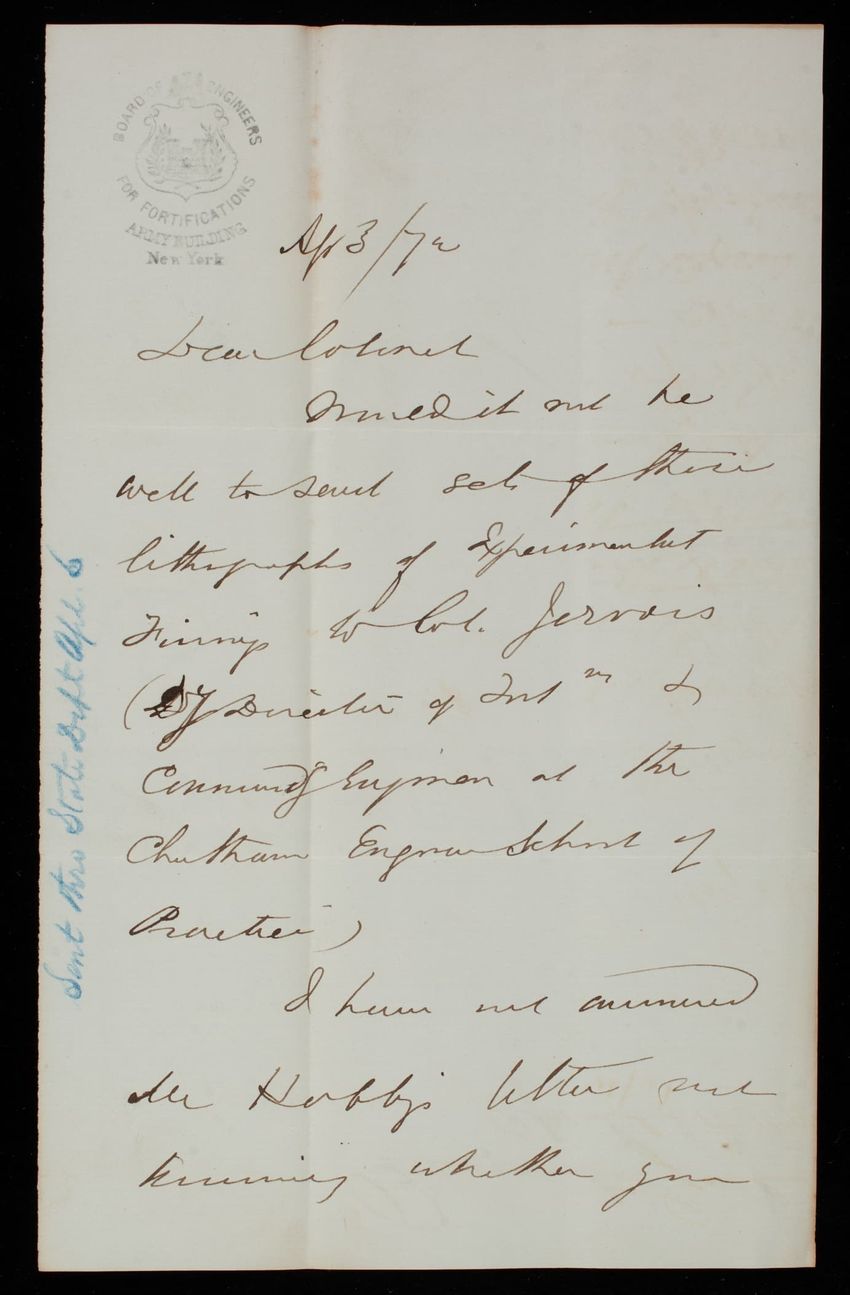 BOARD OF ENGINEERS
FOR FORTIFICATIONS
ARMY BUILDING
New York
Ap 3/72
Dear Colonel
Would it not be
well to send sets of these
lithographs of Experimental
Firings to Col. Jervois
(Dy Director of Fort ns &
Commandg Engineer at the
Chatham Engineer School of
Practice)
I have not answered
Mr Hobby's letter not
knowing whether you
Sent thro State Dept Apl. 6